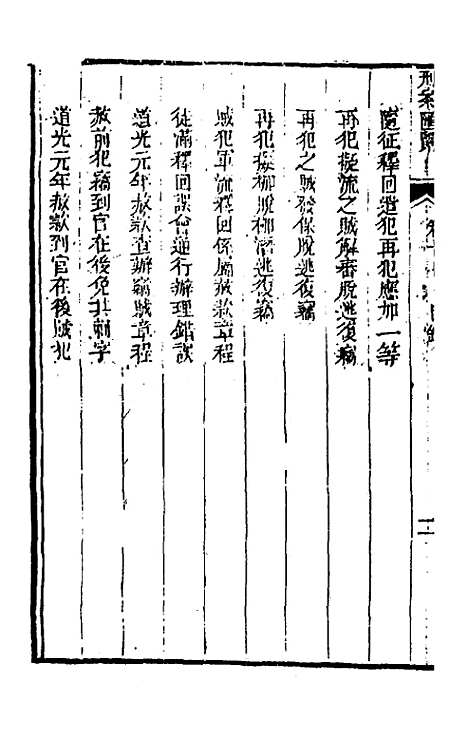 隨征釋回遣犯再犯應加一等
再犯擬流之賊解審脫逃復竊
再犯之賊發保脫逃復竊
再犯擬枷脫枷潛逃復竊
賊犯軍流釋回係屬赦款章程
徒滿釋回誤會通行辦理錯誤
道光元年赦款查辦竊賊章程
赦前犯竊到官在後免其刺字
道光元年赦款到官在後賊犯
刑案匯覽
目錄
二